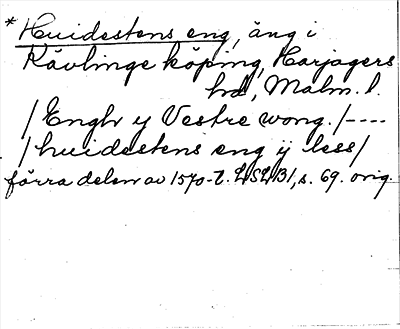 * Huidestens eng, äng i
Kävlinge köping, Harjagers
hd, Malm. l.
/Engh ij Vestre wong./----
/huidestens eng ij less/
förra delen av 1570-t. LSLB1, s. 69. orig.